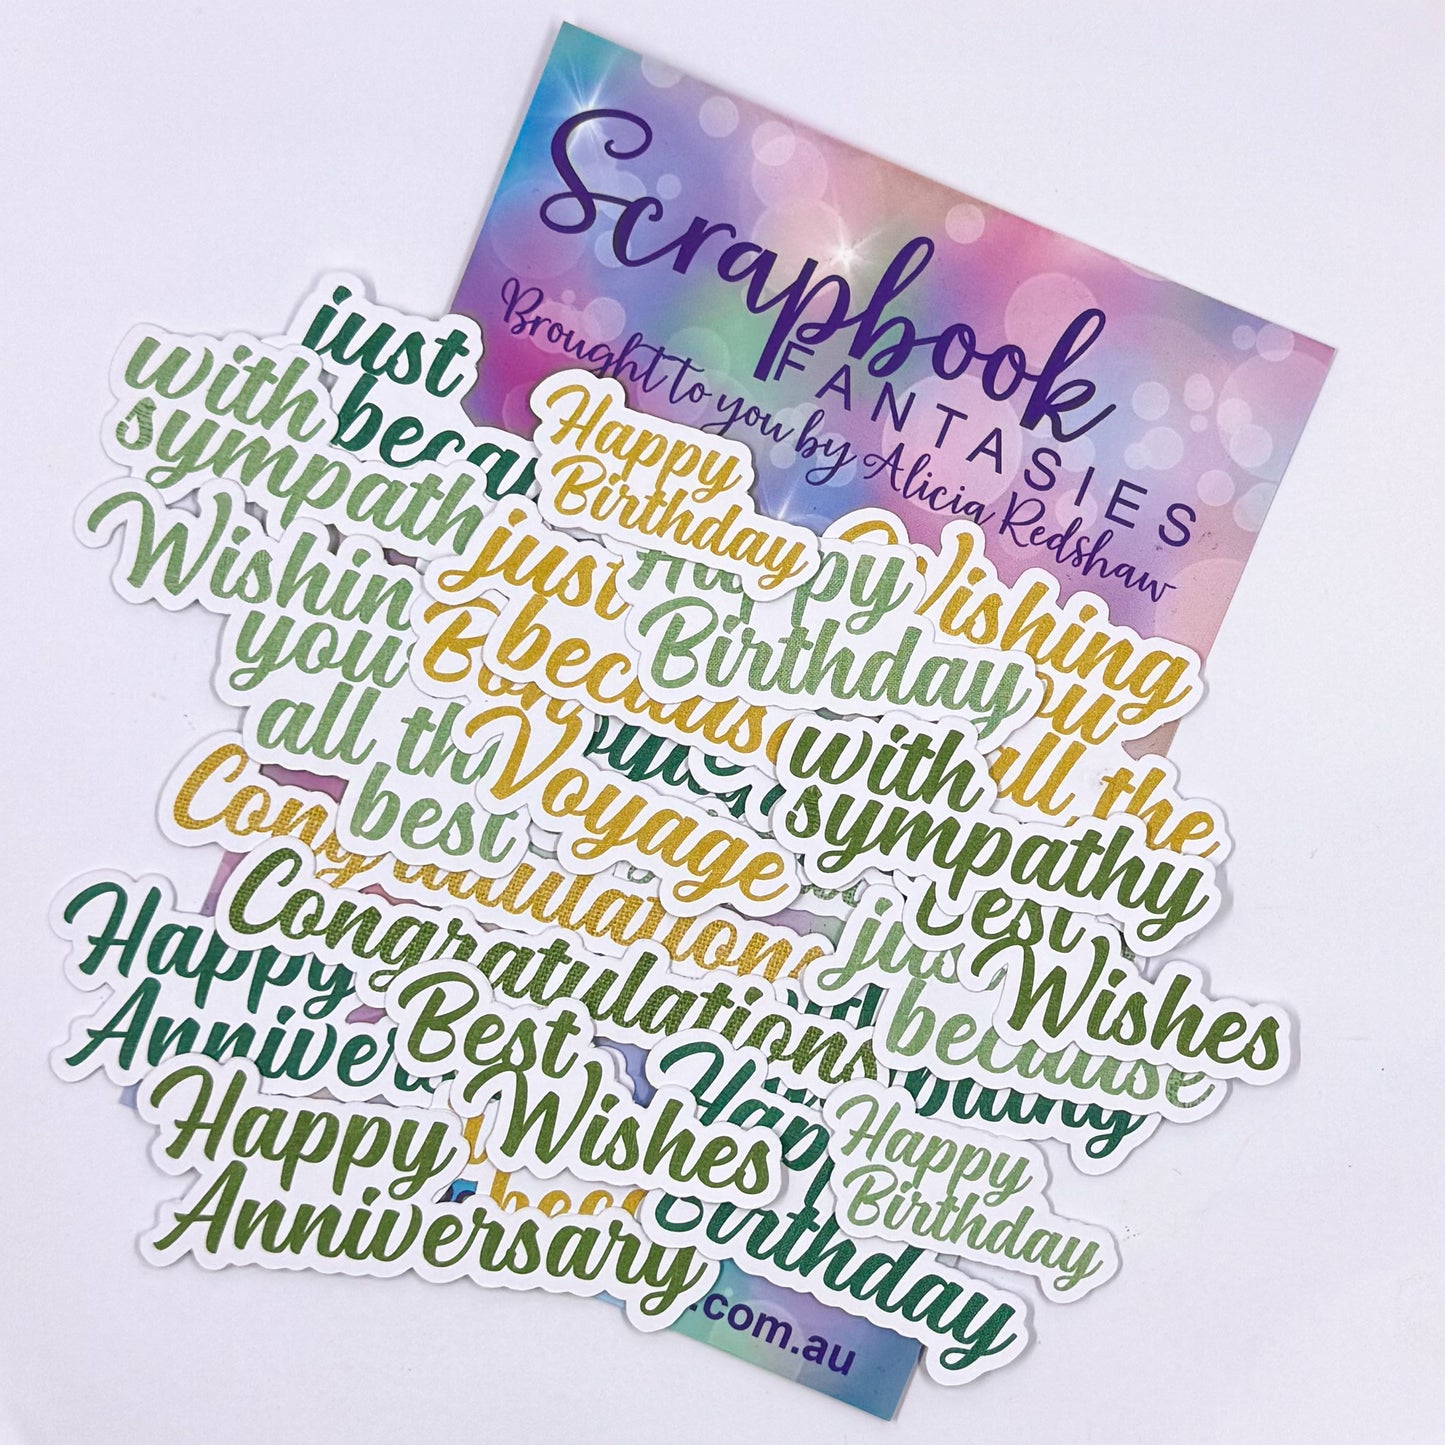 Scrapbook
FANTASIES
Brought to you by Alicia Redshaw
just
becau
with
sympath
Happy
Birthday
Wishing
you
all the
Wishin
you
all th
best
just
becaus
Happy
Birthday
Bo
Voyage
with
sympathy
Congratulations
Congratulations
Best
Wishes
jus
because
Happy
Annivers
Best
Wishes
Happy
Birthday
Happy
Birthday
Happy
Anniversary
.com.au